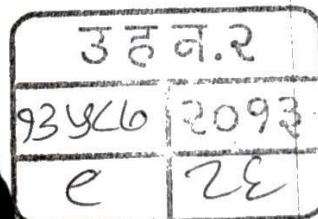 उहन.२
१३५८७ २०१३
९ २६